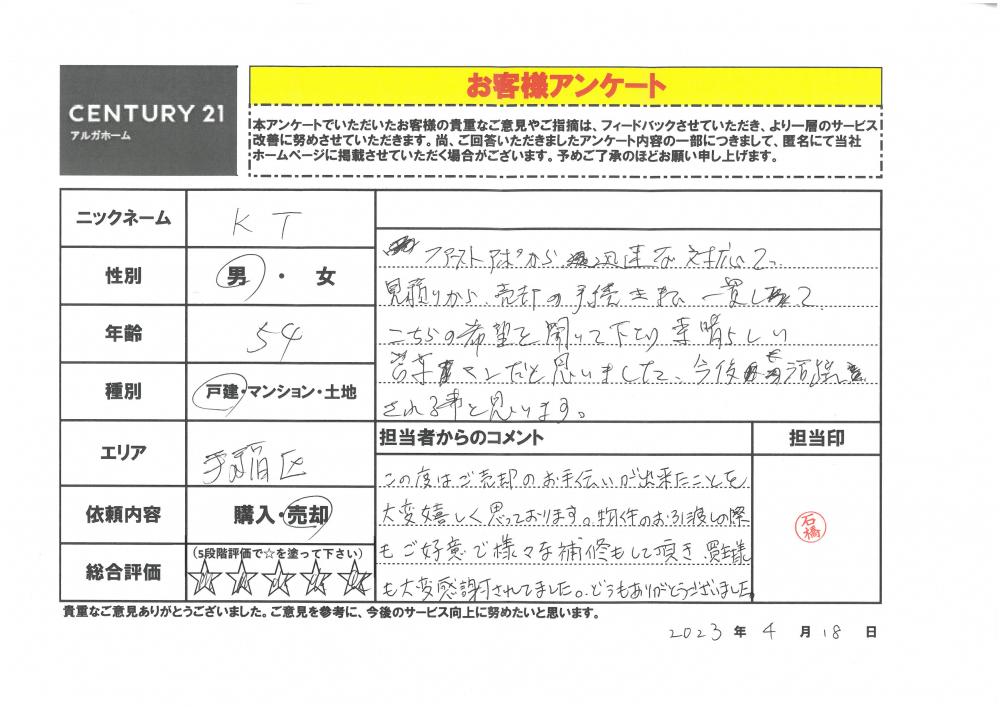 CENTURY 21
アルガホーム
お客様アンケート
本アンケートでいただいたお客様の貴重なご意見やご指摘は、フィードバックさせていただき、より一層のサービス
改善に努めさせていただきます。尚、ご回答いただきましたアンケート内容の一部につきまして、匿名にて当社
ホームページに掲載させていただく場合がございます。予めご了承のほどお願い申し上げます。
ニックネーム
K T
性別
男・女
年齢
54
種別
戸建・マンション・土地
エリア
手稲区
依頼内容
購入・売却
総合評価
(5段階評価で☆を塗って下さい)
ファーストアポから 迅速な対応で、
見積りから、売却の手続きまで 一貫して
こちらの希望を聞いて下さり 素晴らしい
営業マンだと思いました、今後 活躍
される事と思います。
担当者からのコメント
この度はご売却のお手伝いが出来たことを
大変嬉しく思っております。物件のお引渡しの際
もご好意で様々な補修もして頂き、買主様
も大変感謝されてました。どうもありがとうございました
担当印
石橋
貴重なご意見ありがとうございました。ご意見を参考に、今後のサービス向上に努めたいと思います。
2023 年 4 月 18 日